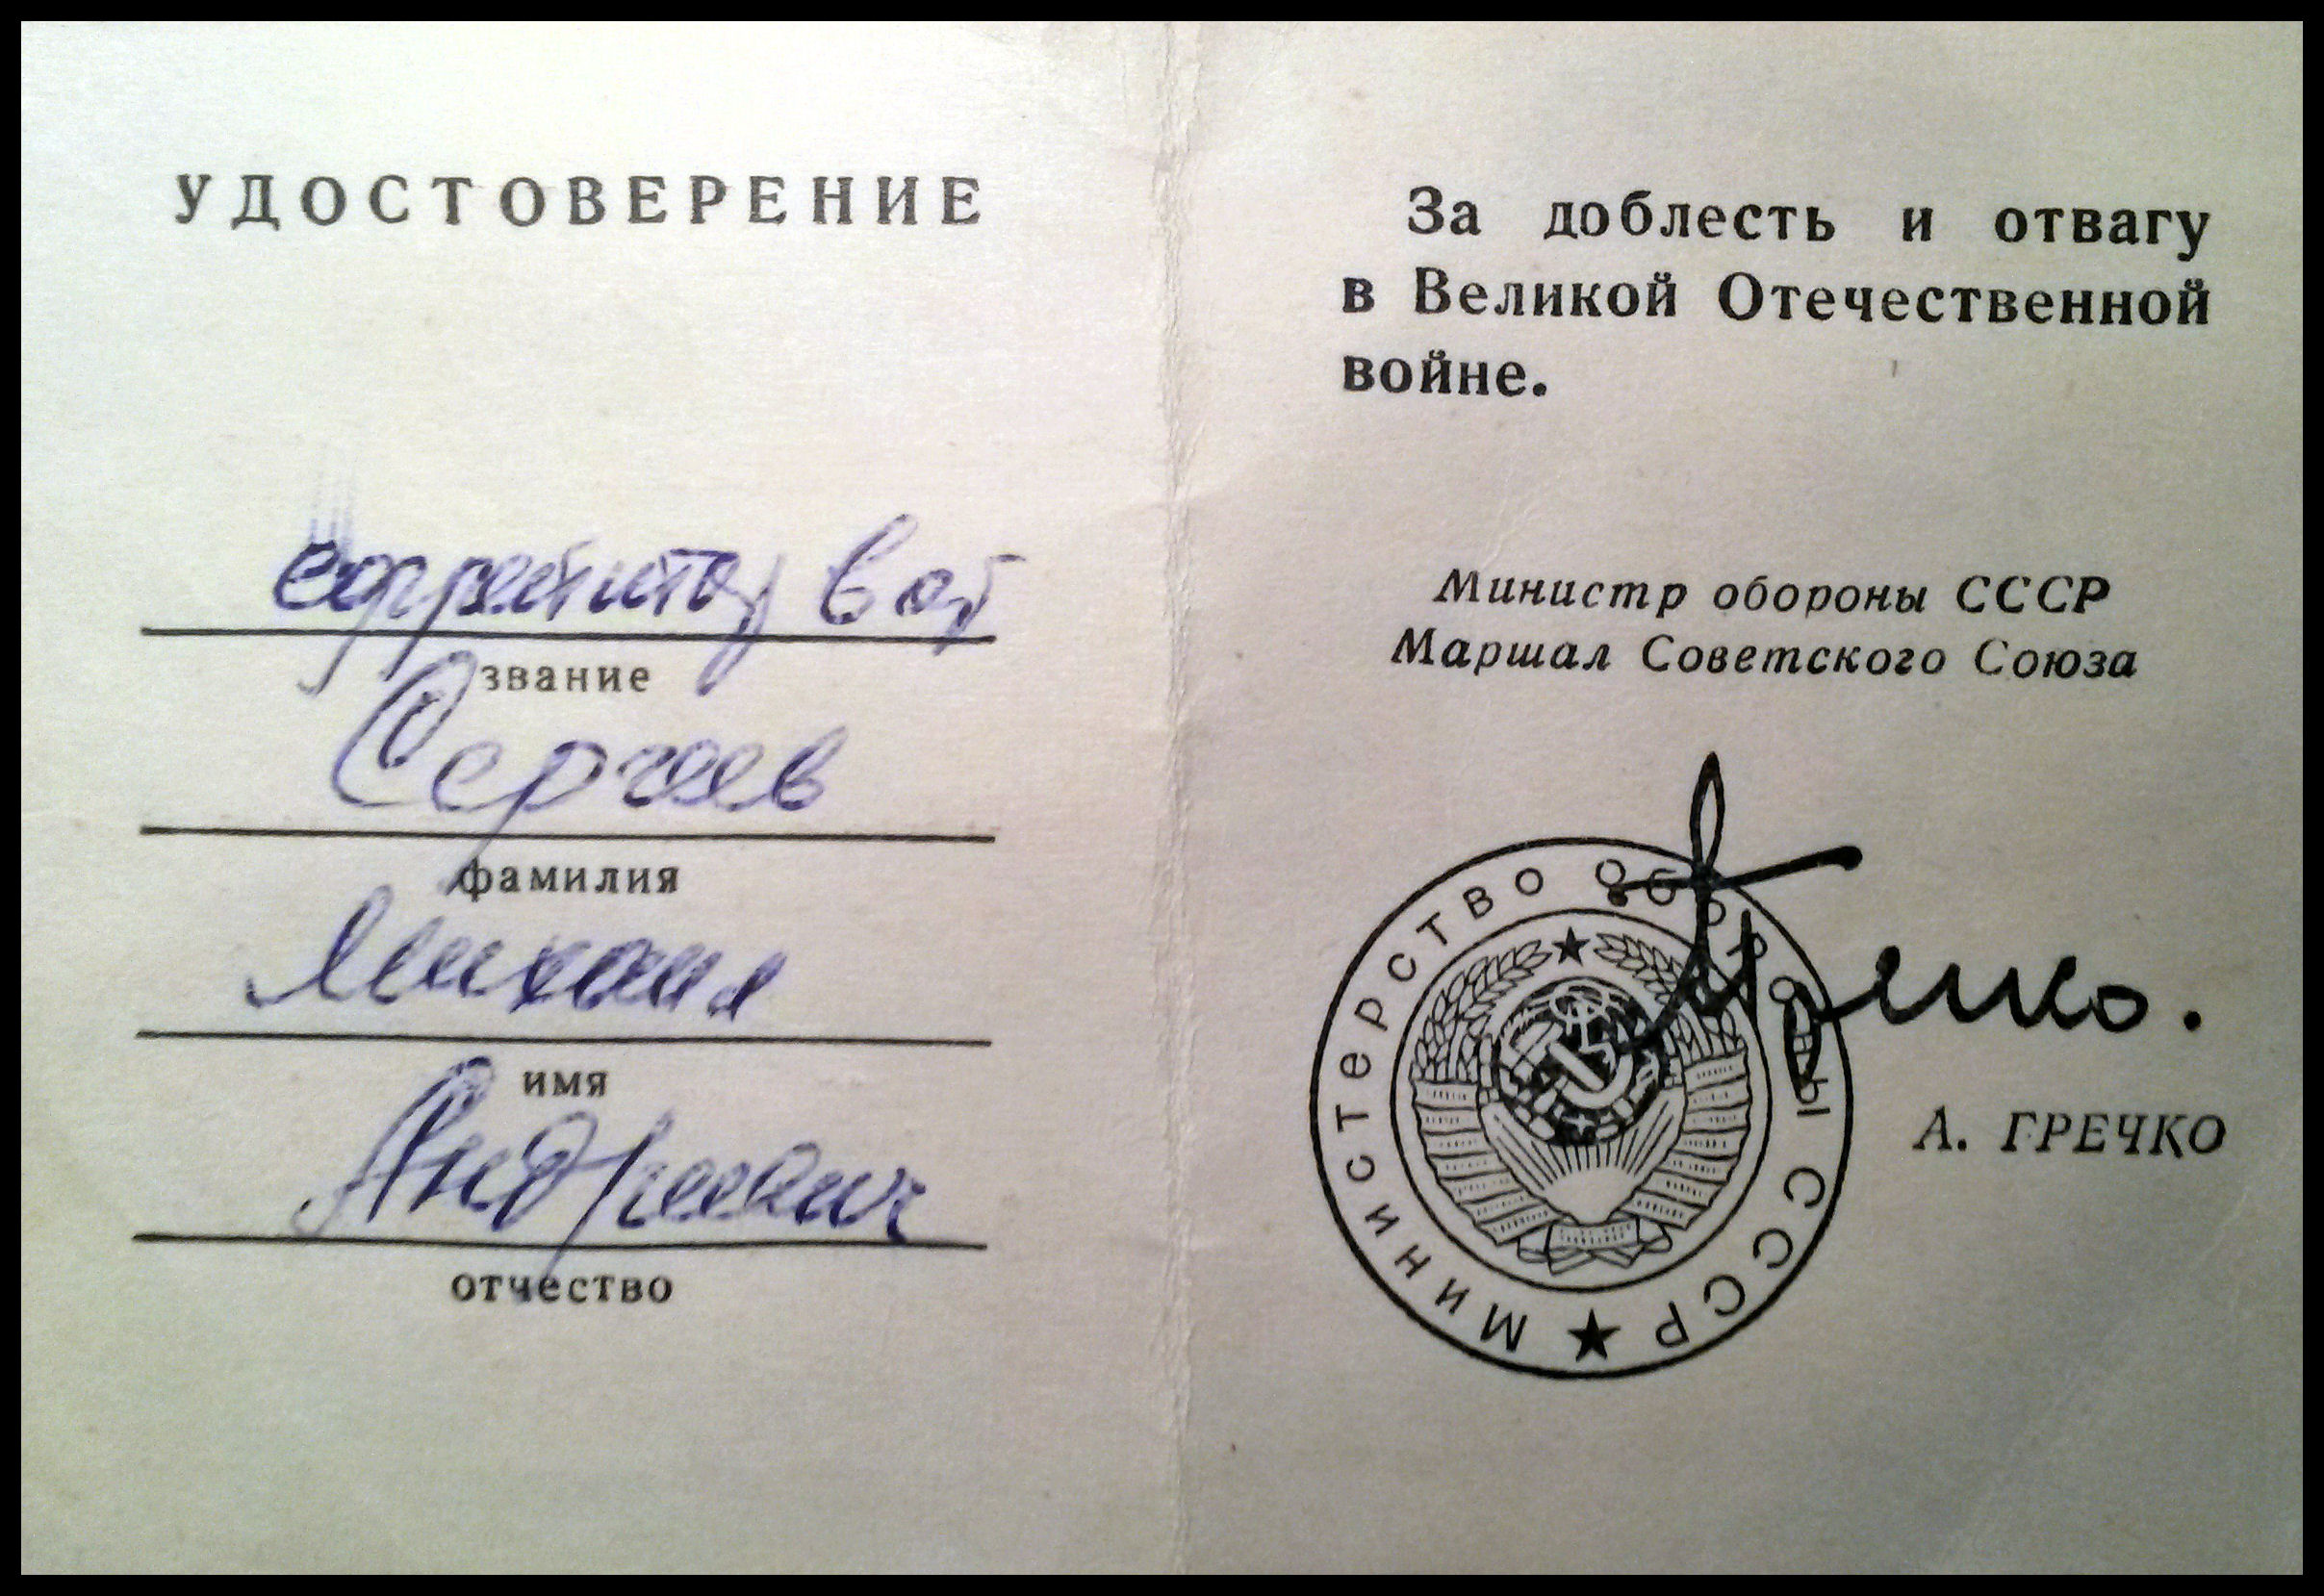 УДОСТОВЕРЕНИЕ
звание
Сергеев
фамилия
Михаил
имя
Андреевич
отчество
За доблесть и отвагу
в Великой Отечественной
войне.
Министр обороны СССР
Маршал Советского Союза
Гречко.
МИНИСТЕРСТВО ОБОРОНЫ СССР
А. ГРЕЧКО